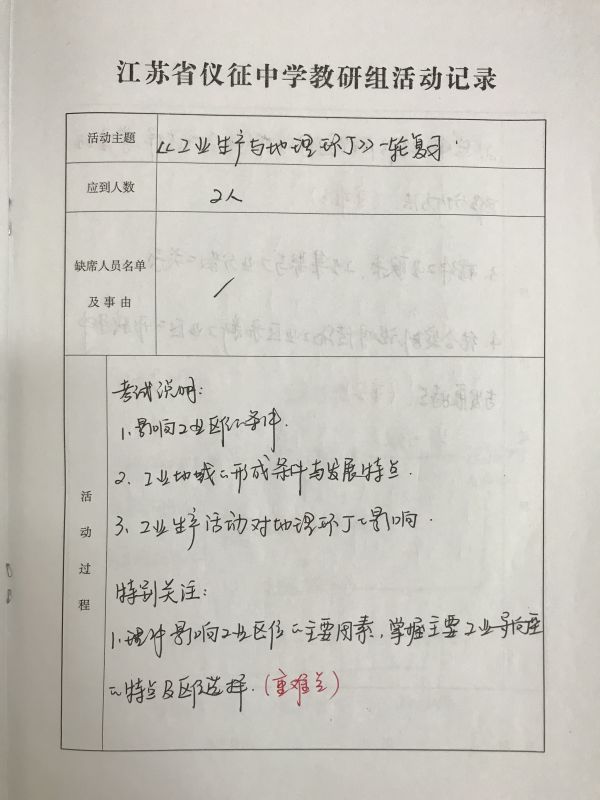 江苏省仪征中学教研组活动记录
活动主题
《工业生产与地理环境》一轮复习
应到人数
2人
缺席人员名单
及事由
/
活动过程
考试说明:
1、影响工业区位的条件.
2、工业地域的形成条件与发展特点.
3、工业生产活动对地理环境的影响.
特别关注:
1、理解影响工业区位的主要因素,掌握主要工业导向型
的特点及区位选择.(重难点)